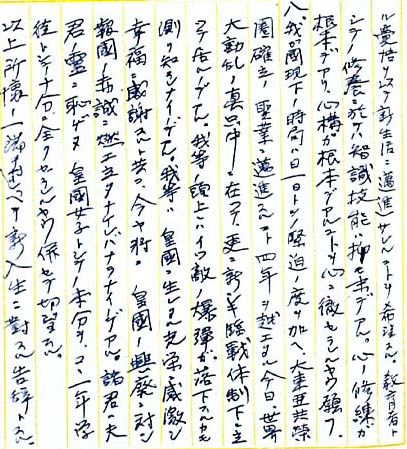 ル覚悟ヲ以テ新生活ニ邁進サレンコトヲ希望スル。教育者ト
シテノ修養ニ於テ、智識技能ハ抑モ末デアル。心ノ修練ガ
根本デアリ、心構ガ根本デアルコトヲ心ニ徹セラレルヤウ願フ。
今ハ我ガ国現下ノ時局ハ日一日トソノ緊迫ノ度ヲ加ヘ、大東亜共栄
圏確立ノ聖業ニ邁進スルコト四年ヲ越エタル今日、世界
大動乱ノ真只中ニ在ツテ更ニ新シキ臨戦体制下ニ立
ツテ居ルデアル。我等ノ頭上ニハイツ敵ノ爆弾ガ落下スルカモ
測リ知レナイデアル。我等ハ皇国ニ生レタル光栄ニ感激シ
幸福ニ感謝スルト共ニ、今ヤ将ニ皇国ノ興廃ニ対シ
報国ノ赤誠ニ燃エ立タナケレバナラナイデアル。諸君ハ夫
君ノ霊ニ恥ヂヌ皇国女子トシテノ本分ヲ、コノ一年学
徒トシテ十分ニ全クセラレルヤウ併セテ切望スル。
以上所懐ノ一端ヲ述ベテ新入生ニ対スル告辞トスル。